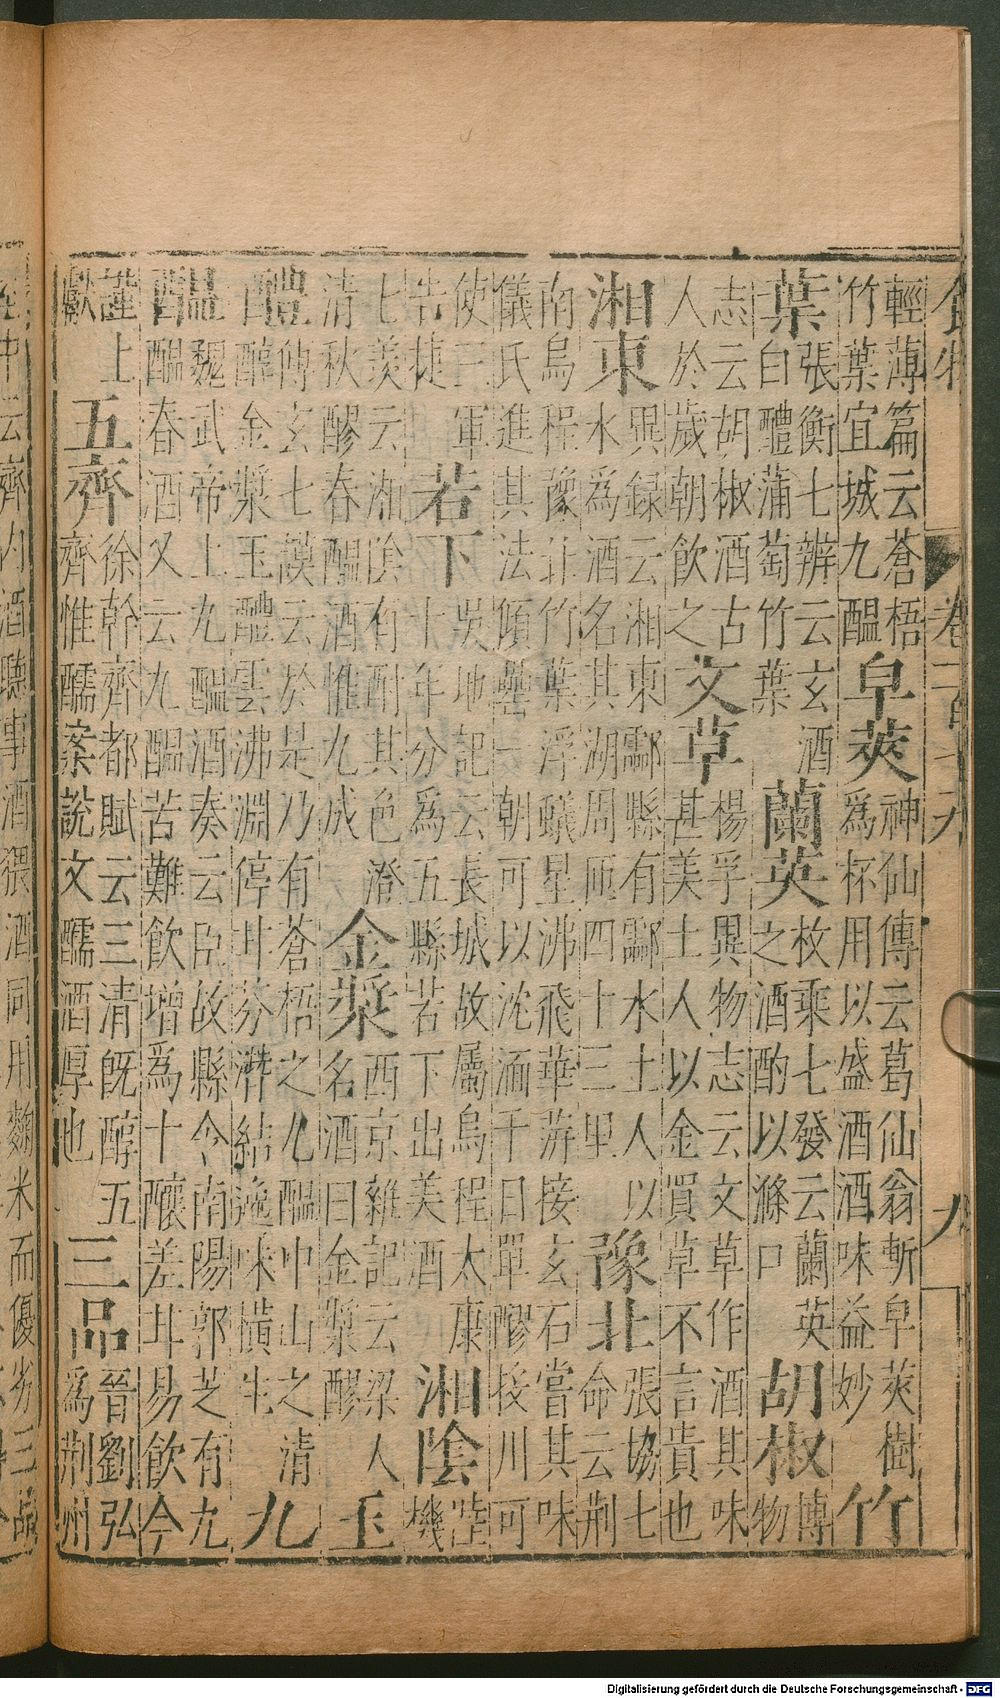 食物 卷一百十九 九
輕薄篇云蒼梧
竹葉宜城九醖
皁莢
神仙傳云葛仙翁斬皁莢樹
為杯用以盛酒酒味益妙
竹
葉
張衡七辨云玄酒
白醴蒲萄竹葉
蘭英
枚乘七發云蘭英
之酒酌以滌口
胡椒
博
物
志云胡椒酒古
人於歲朝飲之
文草
楊孚異物志云文草作酒其味
甚美土人以金買草不言貴也
湘東
異録云湘東酃縣有酃水土人以
水為酒名其湖周匝四十三里
豫北
張協七
命云荆
南烏程豫北竹葉浮蟻星沸飛華蓱接玄石嘗其味
儀氏進其法傾罍一朝可以沈湎千日單醪接川可
使三軍
告捷
若下
吳地記云長城故屬烏程太康
十年分為五縣若下出美酒
湘陰
陸
機
七羨云湘陰有酎其色澄
清秋醪春醖酒惟九成
金漿
西京雜記云梁人
名酒曰金漿醪
玉
醴
傅玄七謨云於是乃有蒼梧之九醖中山之清
醇金漿玉醴雲沸淵停甘芬濟結逸味橫生
九
醖
魏武帝上九醖酒奏云臣故縣令南陽郭芝有九
醖春酒又云九醖苦難飲增爲十釀差甘易飲今
謹上
獻
五齊
徐幹齊都賦云三清既醇五
齊惟醹案説文醹酒厚也
三品
晉劉弘
為荆州
中云齊内酒聽事酒猥酒同用麴米而優劣三品
Digitalisierung gefördert durch die Deutsche Forschungsgemeinschaft - DFG